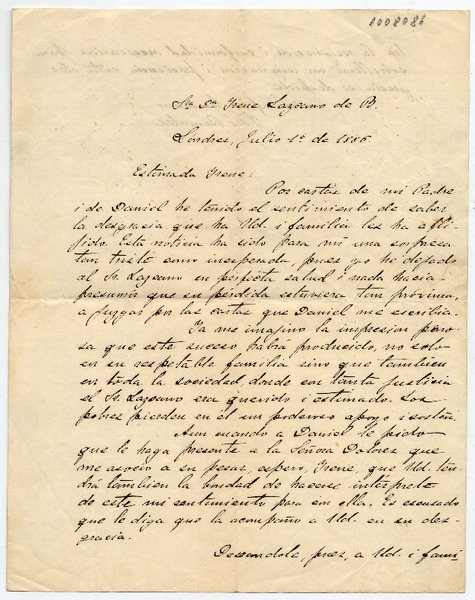 1008086
Sra. Da. Irene Lazcano de B.
Londres, Julio 1º de 1886.
Estimada Irene:
Por cartas de mi Padre
i de Daniel he tenido el sentimiento de saber
la desgracia que ha Ud. i familia les ha afli-
jido. Esta noticia ha sido para mi una sorpresa
tan triste como inesperada, pues yo he dejado
al Sr. Lazcano en perfecta salud i nada hacia
presumir que su pérdida estuviera tan próxima,
a juzgar por las cartas que Daniel me escribia.
Ya me imagino la impresion peno-
sa que este suceso habrá producido, no solo
en su respetable familia sino que tambien
en toda la sociedad, donde con tanta justicia
el Sr. Lazcano era querido i estimado. Los
pobres pierden en él un poderoso apoyo i sosten.
Aun cuando a Daniel le pido
que le haga presente a la Señora Dolores que
me asocio a su pesar, espero, Irene, que Ud. ten-
drá tambien la bondad de hacerse intérprete
de este mi sentimiento para con ella. Es escusado
que le diga que la acompaño a Ud. en su des-
gracia.
Deseandole, pues, a Ud. i fami-